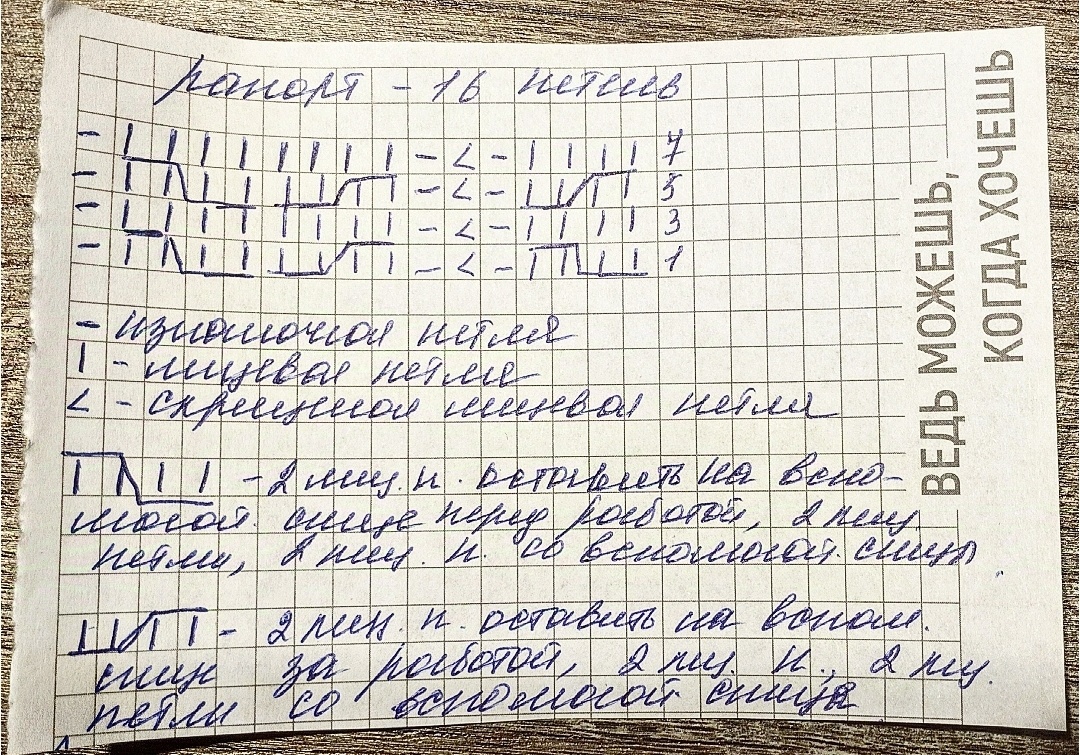 рапорт - 16 петель
- | | | | | | | | - < - | | | | 7
- | | | | | | | | - < - | | | | 5
- | | | | | | | | - < - | | | | 3
- | | | | | | | | - < - | | | | 1
- изнаночная петля
| - лицевая петля
< - скрещеная лицевая петля
| | | | - 2 лиц. п. оставить на вспо-
могат. спице перед работой, 2 лиц.
петли, 2 лиц. п. со вспомогат. спицы
| | | | - 2 лиц. п. оставить на вспом.
спице за работой, 2 лиц. п., 2 лиц.
петли со вспомогат спицы
ВЕДЬ МОЖЕШЬ,
КОГДА ХОЧЕШЬ